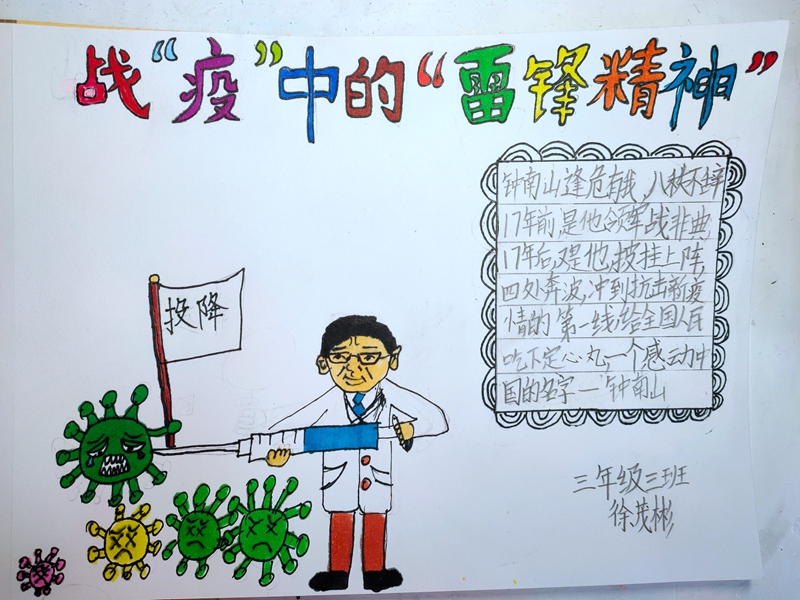 战“疫”中的“雷锋精神”
钟南山逢危有我，八秩不辞
17年前，是他，领军战非典
17年后，又是他，披挂上阵，
四处奔波，冲到抗击新疫
情的第一线，给全国人民
吃下定心丸，一个感动中
国的名字一钟南山
投降
三年级三班
徐茂彬